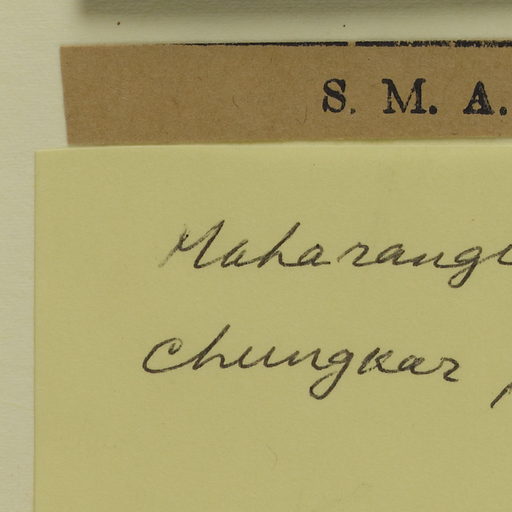 S. M. A.
Maharang
Chungkar